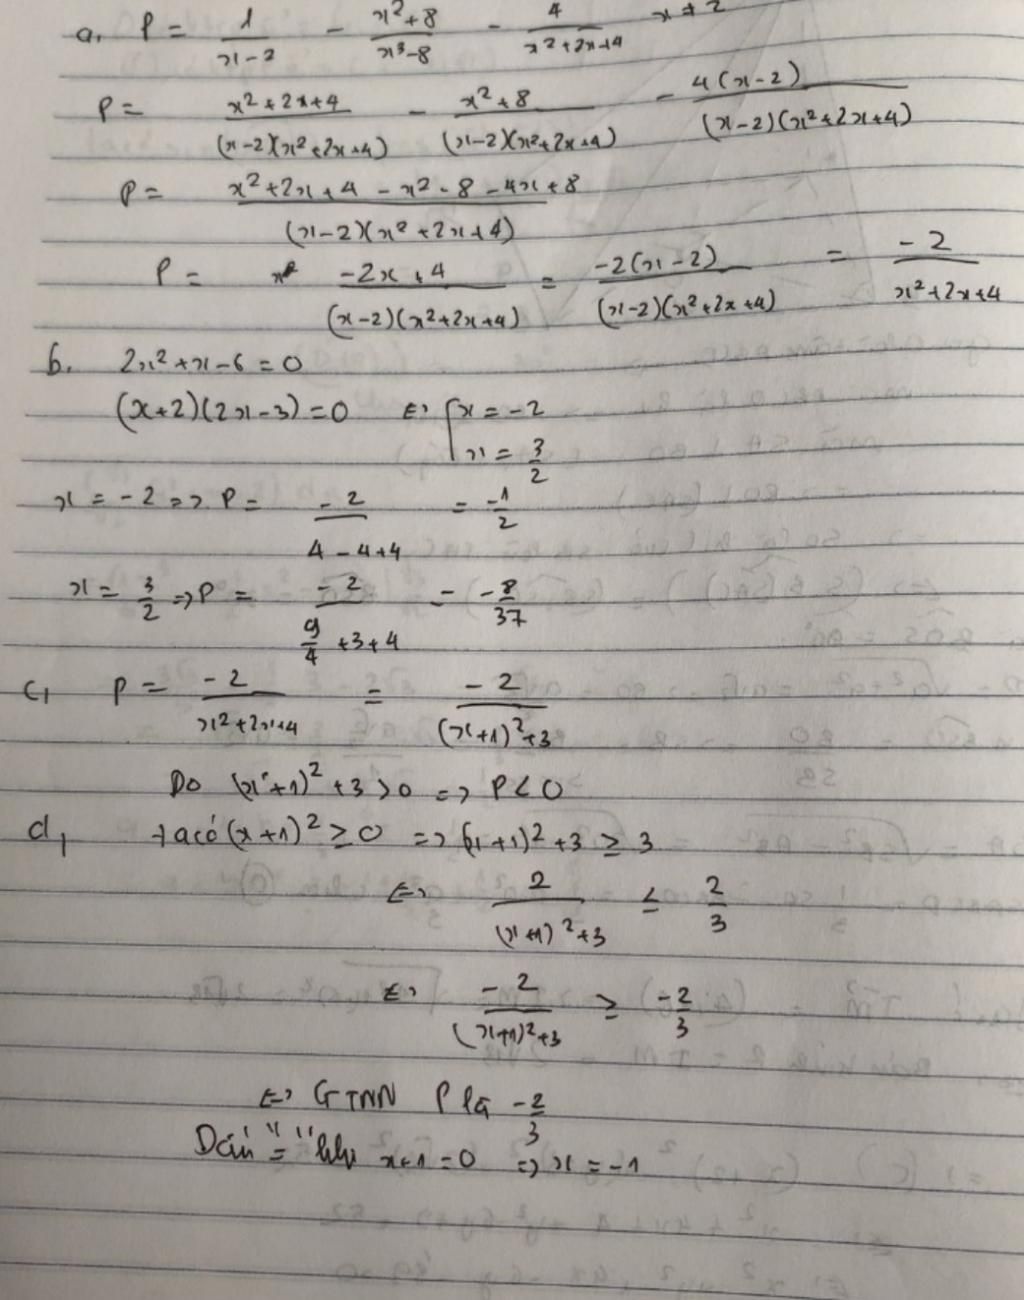 a, P = 1/(x-2) - (x²+8)/(x³-8) - 4/(x²+2x+4) x ≠ 2
P = (x²+2x+4)/((x-2)(x²+2x+4)) - (x²+8)/((x-2)(x²+2x+4)) - 4(x-2)/((x-2)(x²+2x+4))
P = (x²+2x+4-x²-8-4x+8)/((x-2)(x²+2x+4))
P = (-2x+4)/((x-2)(x²+2x+4)) = -2(x-2)/((x-2)(x²+2x+4)) = -2/(x²+2x+4)
b. 2x²+x-6=0
(x+2)(2x-3)=0 <=> [x=-2
x=3/2
x=-2 => P = -2/(4-4+4) = -1/2
x=3/2 => P = -2/(9/4+3+4) = -8/37
c, P = -2/(x²+2x+4) = -2/((x+1)²+3)
Do (x+1)²+3>0 => P<0
d, ta có (x+1)² ≥ 0 => (x+1)²+3 ≥ 3
<=> 2/((x+1)²+3) ≤ 2/3
<=> -2/((x+1)²+3) ≥ -2/3
<=> GTNN P là -2/3
Dấu "=" khi x+1=0 => x=-1